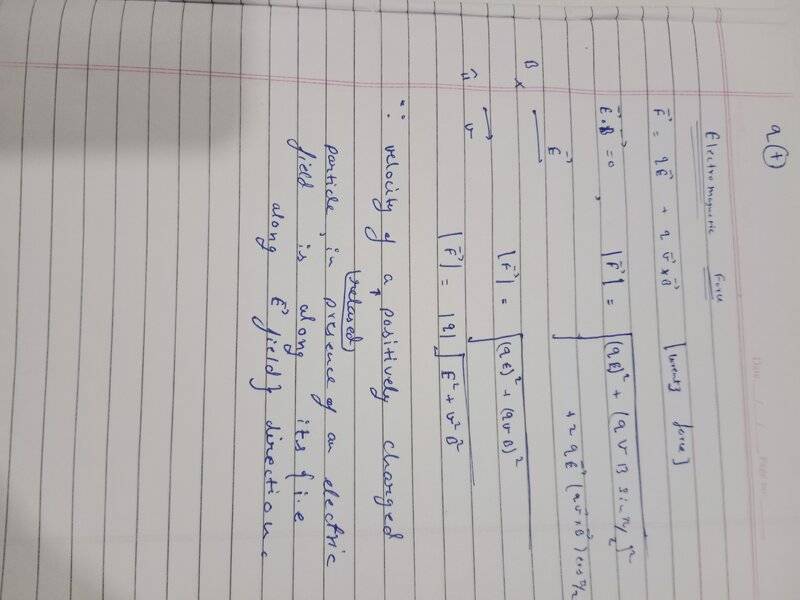 q(+)
Electromagnetic Force
F⃗ = qE⃗ + q v⃗×B⃗ [Lorentz force]
E⃗·B⃗ = 0 , |F⃗| = √(qE)² + (q v B sin π/2)²
+ 2qE⃗ (qv⃗×B⃗) cos π/2
E⃗
B × → v |F⃗| = √(qE)² + (qvB)²
|F⃗| = |q| √E² + v²B²
∵ velocity of a positively charged
released
particle, in presence of an electric
field is along its {i.e
along E⃗ field} direction.